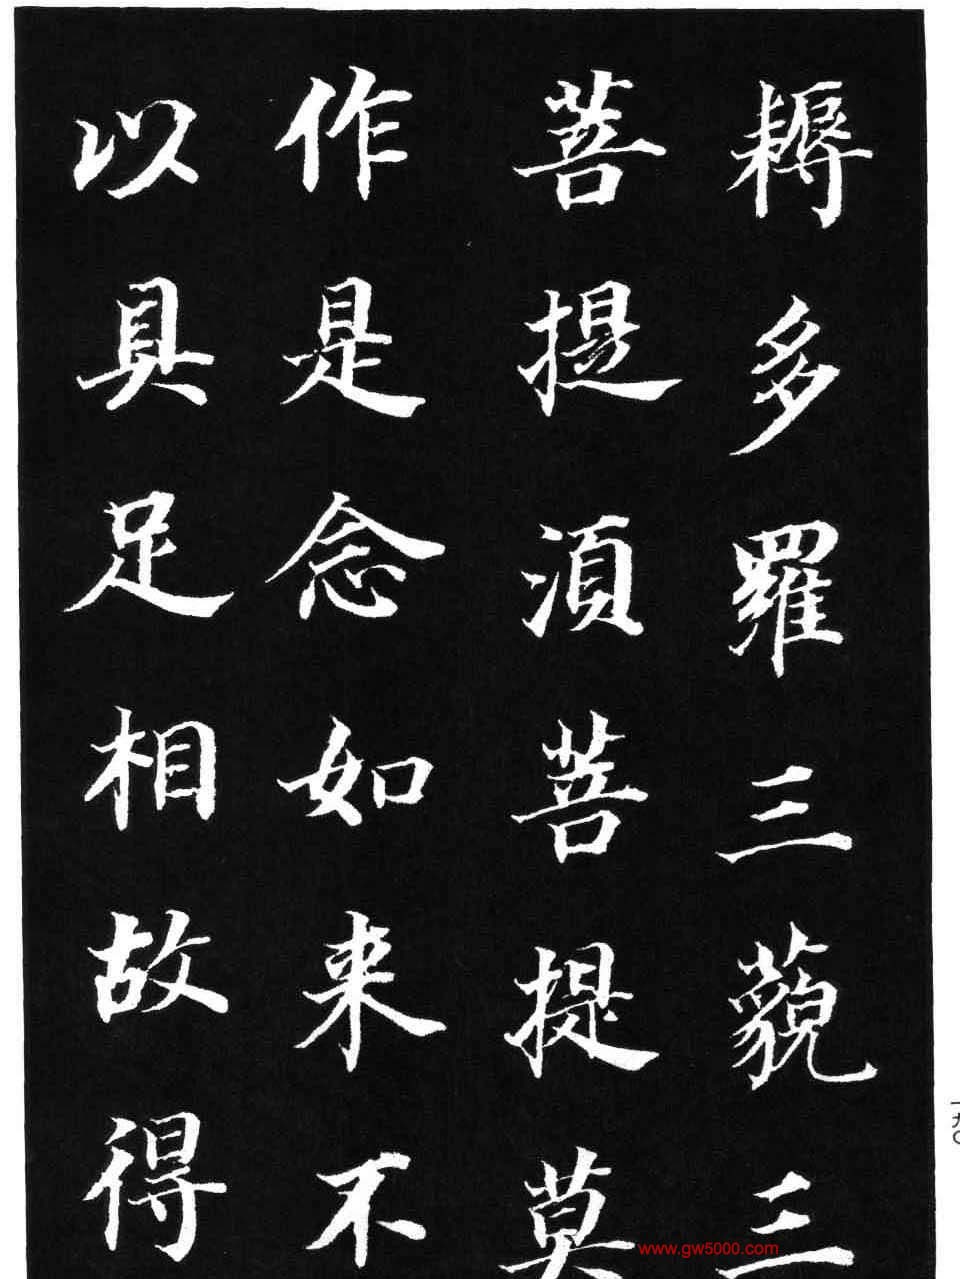 耨多羅三藐三
菩提須菩提莫
作是念如来不
以具足相故得
一九〇
www.gw5000.com